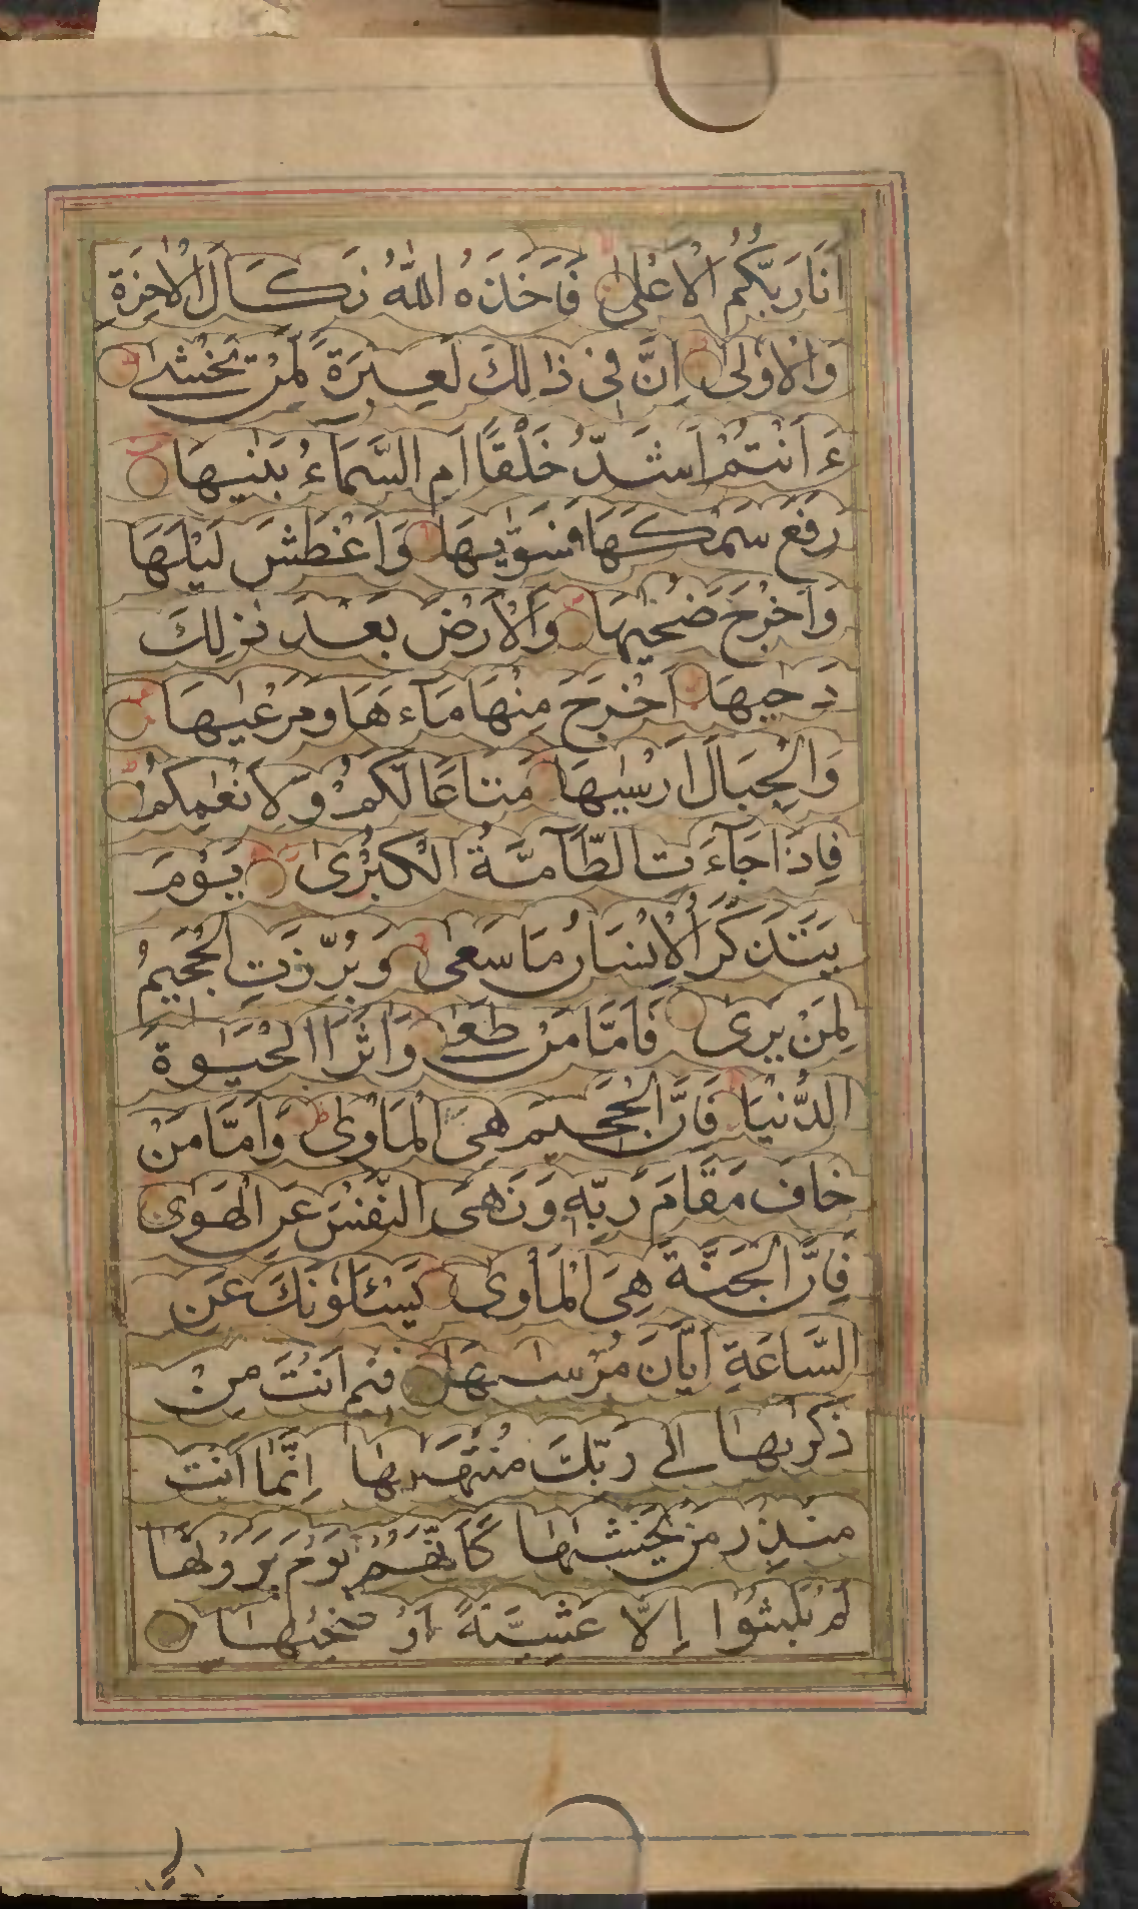 اَنَا رَبُّكُمُ الْاَعْلٰى فَاَخَذَهُ اللّٰهُ نَكَالَ الْاٰخِرَةِ
وَالْاُوْلٰى اِنَّ فِى ذٰلِكَ لَعِبْرَةً لِمَنْ يَخْشٰى
ءَاَنْتُمْ اَشَدُّ خَلْقًا اَمِ السَّمَآءُ بَنٰيهَا
رَفَعَ سَمْكَهَا فَسَوّٰيهَا وَاَغْطَشَ لَيْلَهَا
وَاَخْرَجَ ضُحٰيهَا وَالْاَرْضَ بَعْدَ ذٰلِكَ
دَحٰيهَا اَخْرَجَ مِنْهَا مَآءَهَا وَمَرْعٰيهَا
وَالْجِبَالَ اَرْسٰيهَا مَتَاعًا لَكُمْ وَلِاَنْعٰمِكُمْ
فَاِذَا جَآءَتِ الطَّآمَّةُ الْكُبْرٰى يَوْمَ
يَتَذَكَّرُ الْاِنْسَانُ مَا سَعٰى وَبُرِّزَتِ الْجَحِيمُ
لِمَنْ يَرٰى فَاَمَّا مَنْ طَغٰى وَاٰثَرَ الْحَيٰوةَ
الدُّنْيَا فَاِنَّ الْجَحِيمَ هِىَ الْمَاْوٰى وَاَمَّا مَنْ
خَافَ مَقَامَ رَبِّهِ وَنَهَى النَّفْسَ عَنِ الْهَوٰى
فَاِنَّ الْجَنَّةَ هِىَ الْمَاْوٰى يَسْئَلُوْنَكَ عَنِ
السَّاعَةِ اَيَّانَ مُرْسٰيهَا فِيْمَ اَنْتَ مِنْ
ذِكْرٰيهَا اِلٰى رَبِّكَ مُنْتَهٰيهَا اِنَّمَا اَنْتَ
مُنْذِرُ مَنْ يَخْشٰيهَا كَاَنَّهُمْ يَوْمَ يَرَوْنَهَا
لَمْ يَلْبَثُوْا اِلَّا عَشِيَّةً اَوْ ضُحٰيهَا